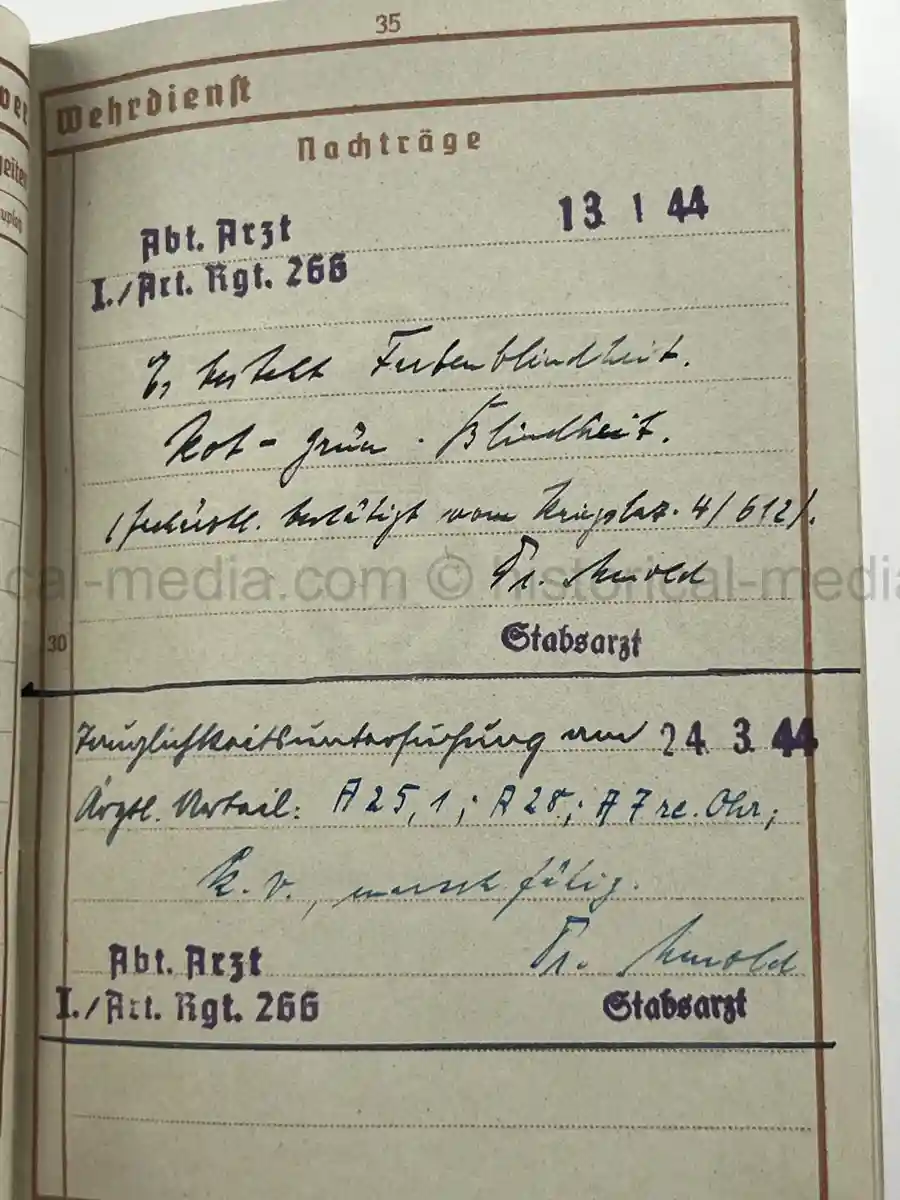 35
Wehrdienst
Nachträge
Abt. Arzt 13 1 44
I./Art. Rgt. 266
Es besteht Farbenblindheit.
Rot-grün-Blindheit.
(fachärztl. bestätigt vom Kriegslaz. 4/612).
Dr. Arnold
30
Stabsarzt
Tauglichkeitsuntersuchung am 24. 3. 44
Ärztl. Urteil: A 25,1; A 28; A 7 re. Ohr;
k. v., marschfähig.
Abt. Arzt Dr. Arnold
I./Art. Rgt. 266 Stabsarzt
cal-media.com © historical-media